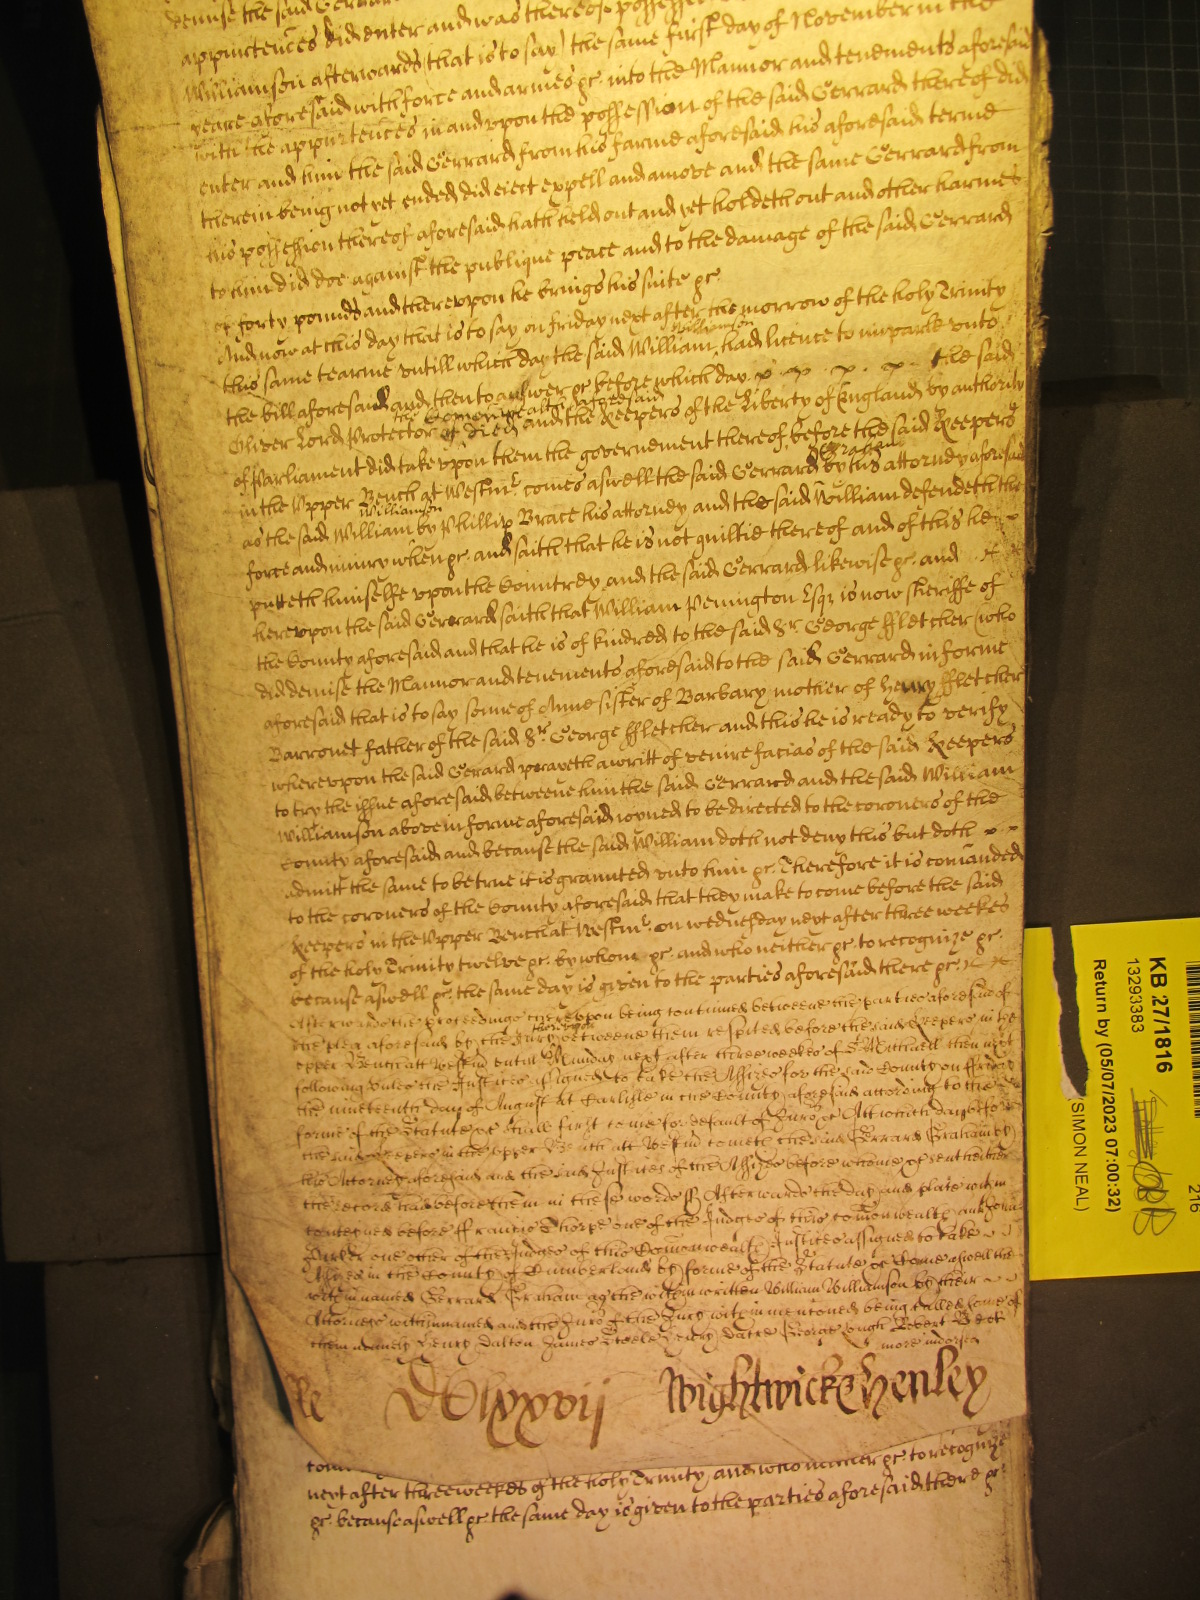 demise the said Gerrard
appurtences did enter and was thereof possessed
Williamson afterwards (that is to say) the same first day of November in the
yeare aforesaid with force and armes &c. into the Mannor and tenements aforesaid
with the appurtences in and upon the possession of the said Gerrard thereof did
enter and him the said Gerrard from his farme aforesaid his aforesaid terme
therein being not yet ended did eiect expell and amove and the same Gerrard from
his possession thereof aforesaid hath held out and yet holdeth out and other harmes
to him did doe against the publique peace and to the damage of the said Gerrard
of forty pounds and thereupon he brings his suite &c.
And now at this day that is to say on friday next after the morrow of the holy Trinity
this same tearme untill which day the said William Williamson had licence to imparle unto
the bill aforesaid and then to answer &c before which day the said
Oliver Lord Protector of the Comonwealth aforesaid died and the Keepers of the Liberty of England by authority
of Parliament did take upon them the government thereof before the said Keepers
in the Upper Bench at Westmr. comes aswell the said Gerrard Graham by his attorney aforesaid
as the said William Williamson by Phillip Brace his attorney and the said William defendeth the
force and iniury when &c. and saith that he is not guiltie thereof and of this he
putteth himselfe upon the Countrey and the said Gerrard likewise &c. and
hereupon the said Gerrard saith that William Penington Esqr is now sheriffe of
the County aforesaid and that he is of kindred to the said Sr. George ffletcher (who
did demise the Mannor and tenements aforesaid to the said Gerrard in forme
aforesaid that is to say sonne of Anne sister of Barbary mother of Henry ffletcher
Barronet father of the said Sr. George ffletcher and this he is ready to verify
whereupon the said Gerard prayeth a writt of venire facias of the said Keepers
to try the issue aforesaid betweene him the said Gerrard and the said William
Williamson above in forme aforesaid ioyned to be directed to the coroners of the
County aforesaid and because the said William doth not deny this but doth
admitt the same to be true it is graunted unto him &c. Therefore it is comanded
to the coroners of the County aforesaid that they make to come before the said
Keepers in the Upper Bench at Westmr. on wednesday next after three weekes
of the holy Trinity twelve &c. by whom &c. and who neither &c. to recognize &c.
because aswell &c. the same day is given to the parties aforesaid there &c.
Afterwards the proceedings thereupon being continued betweene the parties aforesaid of
the plea aforesaid by the Jury thereupon betweene them respited before the said Keepers in the
upper Bench att Westm untill Munday next after three weekes of St Michaell then next
following unles the Justices assigned to take the Assizes for the said County on ffriday
the nineteenth day of August at Carlisle in the County aforesaid according to the
forme of the Statute &c shall first come for default of Jurors &c Att which day before
the said Keepers in the upper Bench att Westm cometh the said Gerrard Graham by
his Attorney aforesaid and the said Justices of the Assizes before whome &c sent hither
the record had before them in these words ss Afterwards the day and place within
conteyned before ffrancis Thorpe one of the Judges of this comonwealth and John
Parker one other of the Judges of this Comonwealth Justices assigned to take
Assizes in the County of Cumberland by forme of the Statute &c Come aswell the
within named Gerrard Graham as the within written William Williamson by their
Attorneys within named and the Jurors of the Jury within mentioned being called some of
them namely Henry Dalton James Steele Henry George Robert
more indorsed
DClxxvij Wightwicke & Henley
next after three weekes of the holy Trinity and who neither &c. to recognize
&c. because aswell &c the same day is given to the parties aforesaid there &c.
KB 27/1816
13293383
Return by (05/07/2023 07:00:32)
(SIMON NEAL)
216